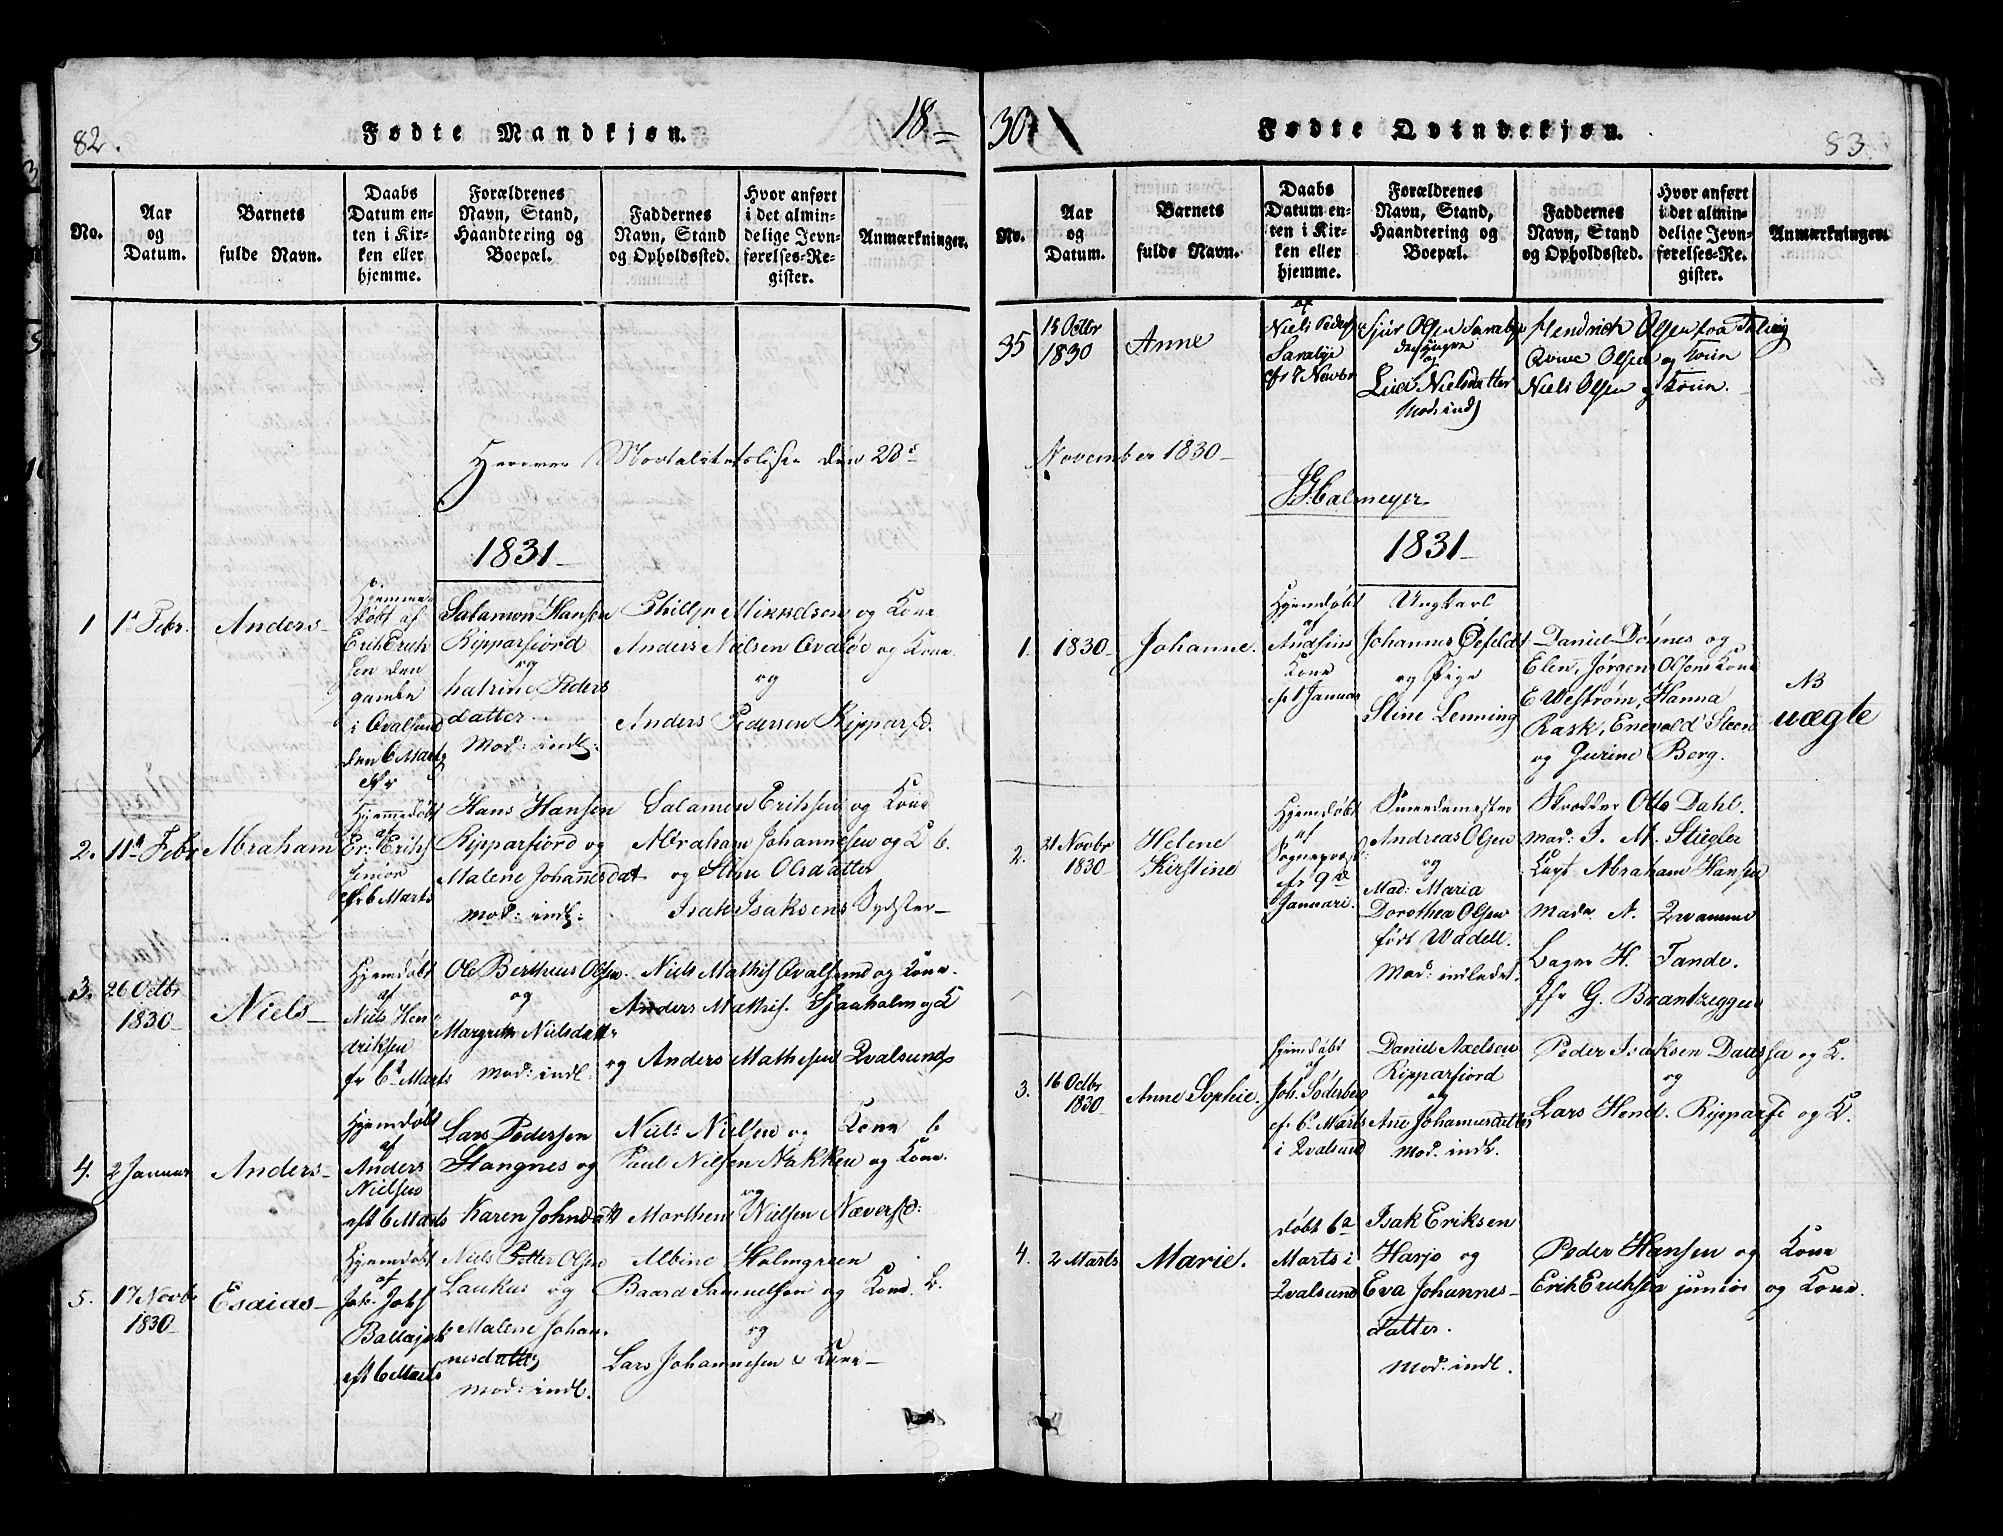 82.
Fødte Mandkjøn.
18-
No.
Aar
og
Datum.
Barnets
fulde Navn.
Daabs
Datum en-
ten i Kir-
ken eller
hjemme.
Forældrenes
Navn, Stand,
Haandtering og
Boepæl.
Faddernes
Navn, Stand
og Opholdssted.
Hvor anført
i det almin-
delige Jevn-
førelses-Re-
gister.
Anmærkninger.
Mortalitetslisten den 20
1831
1
1 Febr.
Anders
Hjemme-
døbt af
Erik Erik-
sen den
gamle
i Qvalsund
den 6 Marts
Salamon Hansen
Ripparfiord
og
Katrine Peders
datter
Mod: indl:
Philip Mikkelsen og Kone
Anders Nielsen Qvaløe og Kone.
og
Anders Pedersen Ripparfd.
2.
11 Febr
Abraham
Hjemmedøbt
af
Er: Eriks
junior
6 Marts
Hans Hansen
Ripparfiord og
Malene Johannesdat
mod: indl:
Salamon Eriksen og Kone
Abraham Johannesen og K
og Stine Olsdatter
Isak Isaksens Sydster
3.
26 Octbr
1830
Niels
Hjemdøbt
af
Niels Hen
driksen
fr 6 Marts
Ole Bertheus Olsen
og
Margrethe Nielsdatt
mod: indl:
Niels Mathis Qvalsund og Kone.
Anders Mathis. Sjaaholm og K
og Anders Mathesen Qvalsund
4.
2 Januar
Anders
Hjemdøbt
af
Anders
Nielsen
eft 6 Marts
Lars Pedersen
Stangnes og
Karen Johnsdatt
Niels Nielsen og Kone
Paul Nilsen Nakken og Kone.
og
Marthene Nielsen Næverfd:
5.
17 Novbr
1830
Esaias
Hjemdøbt
af
Joh. Johs
eft 6 Marts
Niels Petter Olsen
Laukus og
Malene Johan
nesdatter
mod: indl.
Albine Holmgreen
Baard Samuelsen og Kone.
og
Lars Johannesen & Kone
30
Fødte Qvindekjøn.
83
No.
Aar
og
Datum.
Barnets
fulde Navn.
Daabs
Datum en-
ten i Kir-
ken eller
hjemme.
Forældrenes
Navn, Stand,
Haandtering og
Boepæl.
Faddernes
Navn, Stand
og Opholdssted.
Hvor anført
i det almin-
delige Jevn-
førelses-Re-
gister.
Anmærkninger.
35
15 Octbr
1830
Anne
af
Niels Peders
Sarabye
7 Novbr
Sjur Olsen Sarabye
den yngre
og
Lud Nielsdatter
Mod: indl
Hendrich Olsen fra Talvig
Olsen og Konen
Niels Olsen og Konen.
November 1830
Calmeyer
1831
1.
1830
Johanne.
Hjemdøbt
af
Kone
1 Januar
Ungkarl
Johannes Øefeldt
og Pige
Stine Lenning
Daniel Dønnes og
Elen, Jørgen Olsens Kone
E Westrøm, Hanna
Rask, Enevold Steen
og Jurine Berg.
NB
uægte
2.
21 Novbr
1830
Helene
Kirstine
Hjemdøbt
af
Sognepræst
9de
Januari.
Smedemester
Andreas Olsen
og
Mad: Maria
Dorothea Olsen
født Wadell.
Mod: indledet.
Skredder Otto Dahl.
Mad: I. M. Stiegler
Abraham Hansen
Mada A. Zwamme
Bager H. Tande.
Jfr G. Brantzeggen
3.
16 Octbr
1830
Anne Sophie.
Hjemdøbt
af
Joh. Søderberg
6 Marts
i Qvalsund
Daniel Axelsen
Ripparfiord
og
Ane Johannesdatter
Mod: indl.
Peder Isaksen Daussa og K.
og
Lars Hend. Ripparfi og K.
4.
2 Marts
Marie.
Døbt 6
Marts i
Qvalsund
Isak Eriksen
Harjo og
Eva Johannes-
datter.
Mod: indl.
Peder Hansen og Kone
Erik Eriksen junior og Kone.